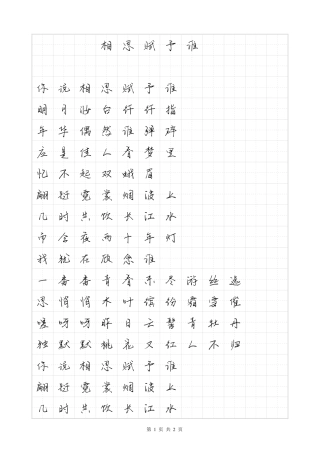 相思赋予谁
你说相思赋予谁
明月妆台纤纤指
年华偶然谁弹碎
应是佳人春梦里
忆不起双蛾眉
翩跹霓裳烟波上
几时共饮长江水
而今夜雨十年灯
我犹在顾念谁
一番番青春未尽游丝逸
思悄悄木叶缤纷霜雪催
嗟呀呀昨日云髻青牡丹
独默默桃花又红人不归
你说相思赋予谁
翩跹霓裳烟波上
几时共饮长江水
第 1 页 共 2 页